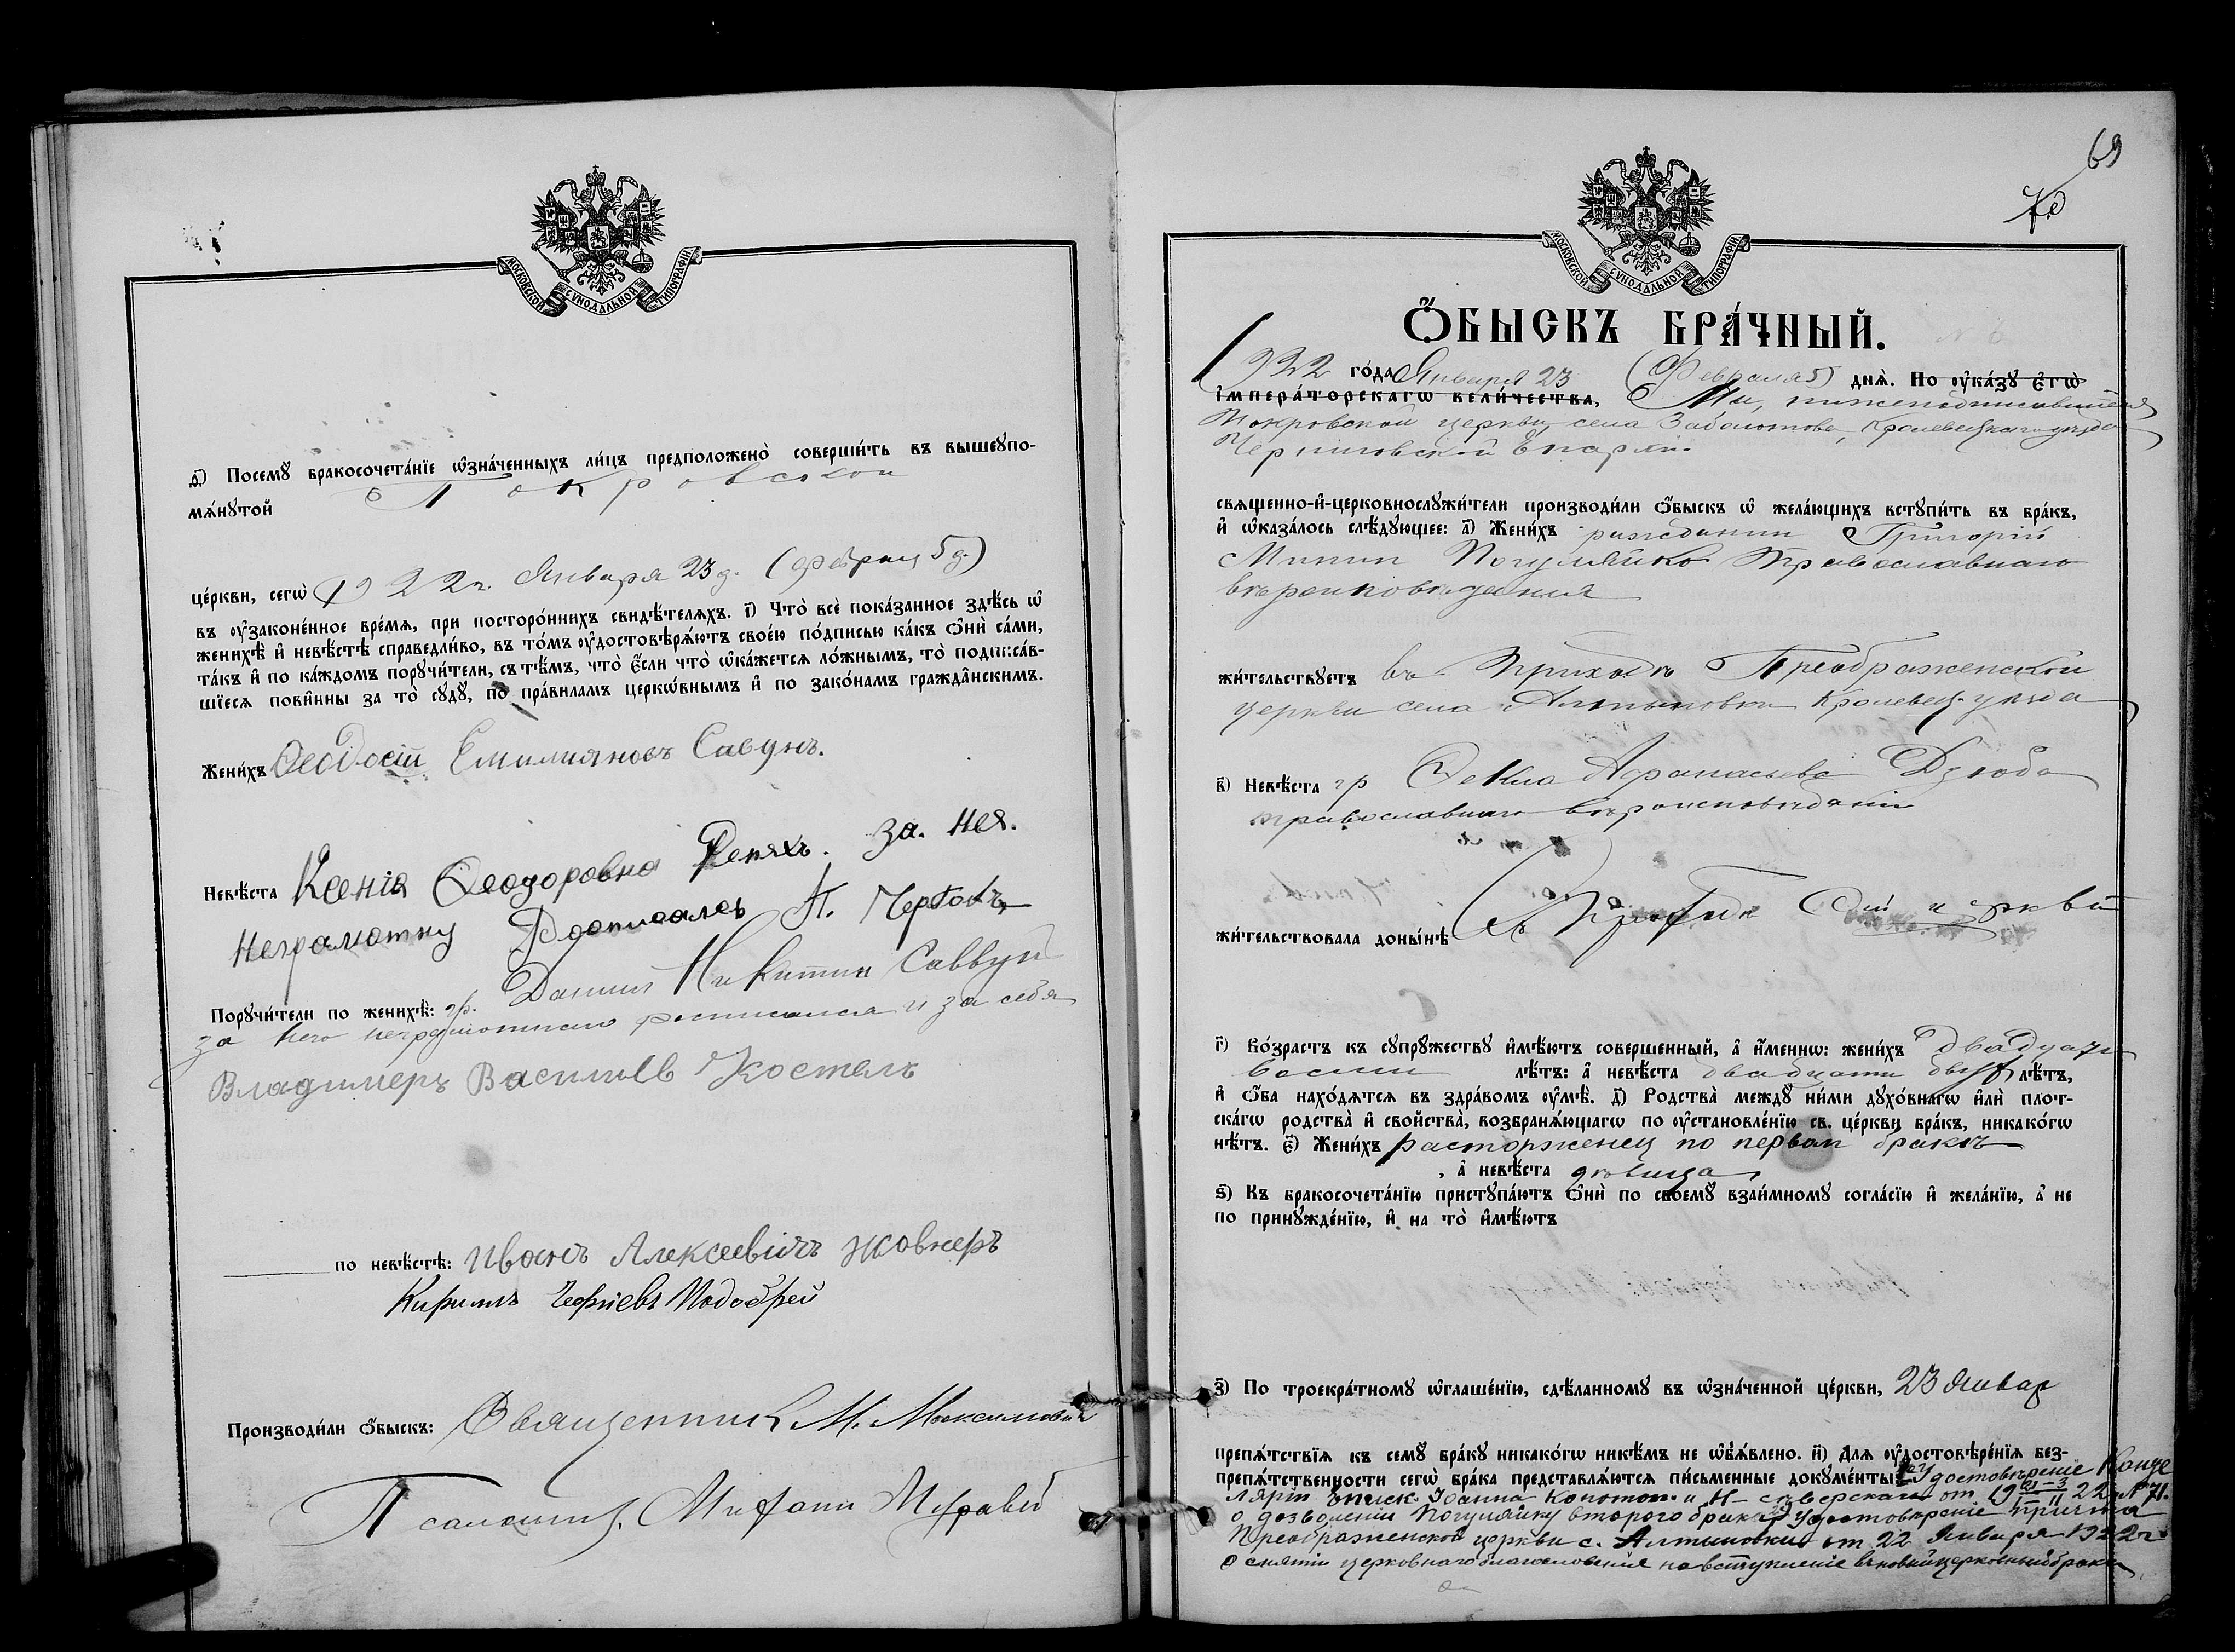 МОСКОВСКОЙ СѴНОДАЛЬНОЙ ТИПОГРАФІИ
д҃) Посемꙋ̀ бракосочета́нїе ѡ҆зна́ченныхъ ли́цъ предположено̀ соверши́ть въ вышеꙋпо-
мѧ́нꙋтой Покровской
це́ркви, сегѡ̀ 1922 г. Января 23 д. (Феврал 5 д.)
въ ᲂу҆законе́нное вре́мѧ, при посторо́ннихъ свидѣ́телѧхъ. і҃) Что̀ всѐ пока́занное здѣ́сь ѡ҆
женихѣ̀ и҆ невѣ́стѣ справедли́во, въ то́мъ ᲂу҆достовѣрѧ́ютъ свое́ю по́дписью ка́къ ѻ҆нѝ са́ми,
та́къ и҆ по ка́ждомъ порꙋчи́тели, съ тѣ́мъ, что̀ є҆́сли что̀ ѡ҆ка́жетсѧ ло́жнымъ, то̀ подписа́в-
шїесѧ пови́нны за то̀ сꙋдꙋ̀, по пра́виламъ церкѡ́внымъ и҆ по зако́намъ гражда̂нскимъ.
Жени́хъ Ѳеодосій Емилияновъ Савунъ.
Невѣ́ста Ксенія Ѳеодоровна Репяхъ. За. нея.
неграмотну Росписалсь П. Чертокъ
Порꙋчи́тели по женихѣ̀: гр. Даниил Никитин Саввун
за него неграмотнаго росписался и за себя
Владимеръ Василиев Костель
по невѣ́стѣ: Иванъ Алексеевичъ Жовнеръ
Кирилъ Георгіевъ Подобрей
Производи́ли ѻ҆́быскъ: Священник М. Максимович
Псаломщ. Митрофан Муравей
69
70
МОСКОВСКОЙ СѴНОДАЛЬНОЙ ТИПОГРАФІИ
Ѻ҆́БЫСКЪ БРА́ЧНЫЙ.
1922 го́да Января 23 (Февраля 5) днѧ̀. По ᲂу҆ка́зꙋ є҆гѡ̀
і҆мпера́торскагѡ вели́чества, Мы, нижеподписавшиеся
Покровской церкви села Заболотова, Кролевецкаго уезда
Черниговской Епархіи
свѧщенно-и҆-церковнослꙋжи́тели производи́ли ѻ҆́быскъ ѡ҆ жела́ющихъ встꙋпи́ть въ бра́къ,
и҆ ѡ҆каза́лось слѣ́дꙋющее: а҃) Жени́хъ гражданин Григорій
Минин Погуляйко Православнаго
вероисповедания
жи́тельствꙋетъ въ приходѣ Преображенской
церкви села Алтыновки Кролевец. уезда
в҃) Невѣ́ста гр Ѳекла Афанасьева Дзюба
православнаго вероисповедания
жи́тельствовала доны́нѣ въ приходе сей церкви
г҃) Во́зрастъ къ сꙋпрꙋ́жествꙋ и҆мѣ́ютъ соверше́нный, а҆ и҆́меннѡ: жени́хъ двадцати
восьми лѣ́тъ: а҆ невѣ́ста двадцати двух лѣ́тъ,
и҆ ѻ҆́ба нахо́дѧтсѧ въ здра́вомъ ᲂу҆мѣ̀. д҃) Родства̀ междꙋ̀ ни́ми дꙋхо́внагѡ и҆лѝ плот-
ска́гѡ родства̀ и҆ сво́йства, возбранѧ́ющагѡ по ᲂу҆становле́нїю св. це́ркви бра́къ, никако́гѡ
нѣ́тъ. є҃) Жени́хъ расторженец по первом браке
, а҆ невѣ́ста девица
ѕ҃) Къ бракосочета́нїю пристꙋпа́ютъ ѻ҆нѝ по своемꙋ̀ взаи́мномꙋ согла́сїю и҆ жела́нїю, а҆ не
по принꙋжде́нїю, и҆ на то̀ и҆мѣ́ютъ
з҃) По троекра́тномꙋ ѡ҆глаше́нїю, сдѣ́ланномꙋ въ ѡ҆зна́ченной це́ркви, 23 Январ
препѧ́тствїѧ къ семꙋ̀ бра́кꙋ никако́гѡ никѣ́мъ не ѡ҆б̾ѧ́влено. и҃) Для ᲂу҆достовѣре́нїѧ без-
препѧ́тственности сегѡ̀ бра́ка представлѧ́ютсѧ пи́сьменные докꙋме́нты: Удостовѣреніе Канце
ляріи Еписк. Іоанна Конотоп. и Н-сѣверскаго от 1922 № 71.
о дозволеніи Погуляйку второго брака Удостоверение причта
Преображенской церкви с. Алтыновки от 22 Января 1922 г.
о снятіи церковнаго благословения на вступление в новый церковный брак